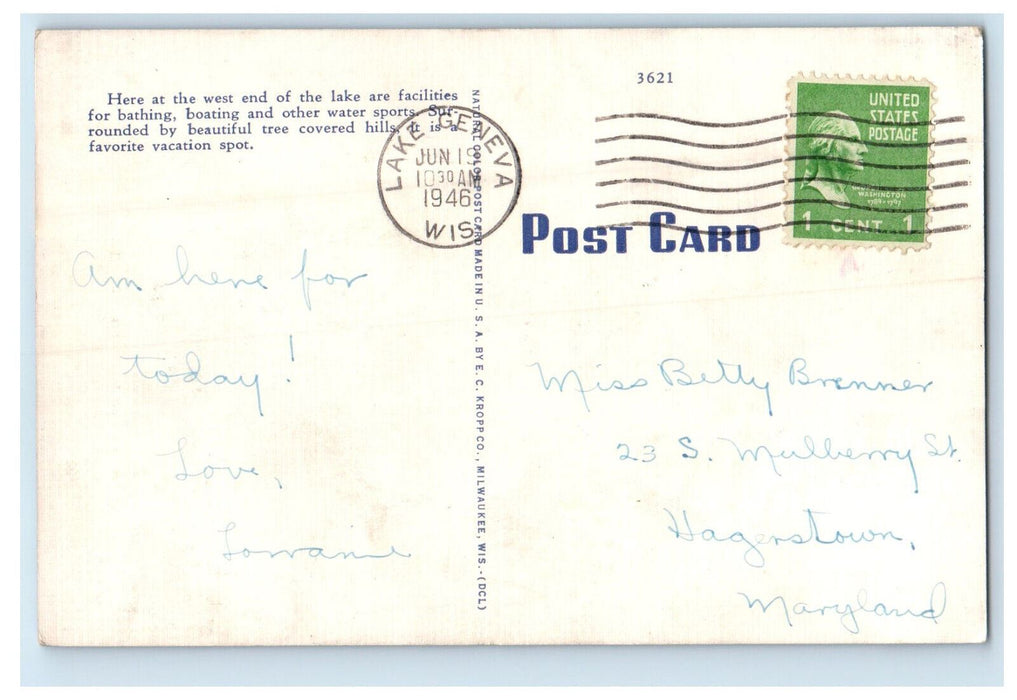 Here at the west end of the lake are facilities
for bathing, boating and other water sports. Sur-
rounded by beautiful tree covered hills, it is a
favorite vacation spot.
3621
LAKE GENEVA
JUN 19
10 30 AM
1946
WIS.
UNITED
STATES
POSTAGE
WASHINGTON
1789-1797
1 CENT 1
POST CARD
NATURAL COLOR POST CARD MADE IN U. S. A. BY E. C. KROPP CO., MILWAUKEE, WIS.-(DCL)
Am here for
today!
Love,
Lorraine
Miss Betty Brenner
23 S. Mulberry St.
Hagerstown,
Maryland